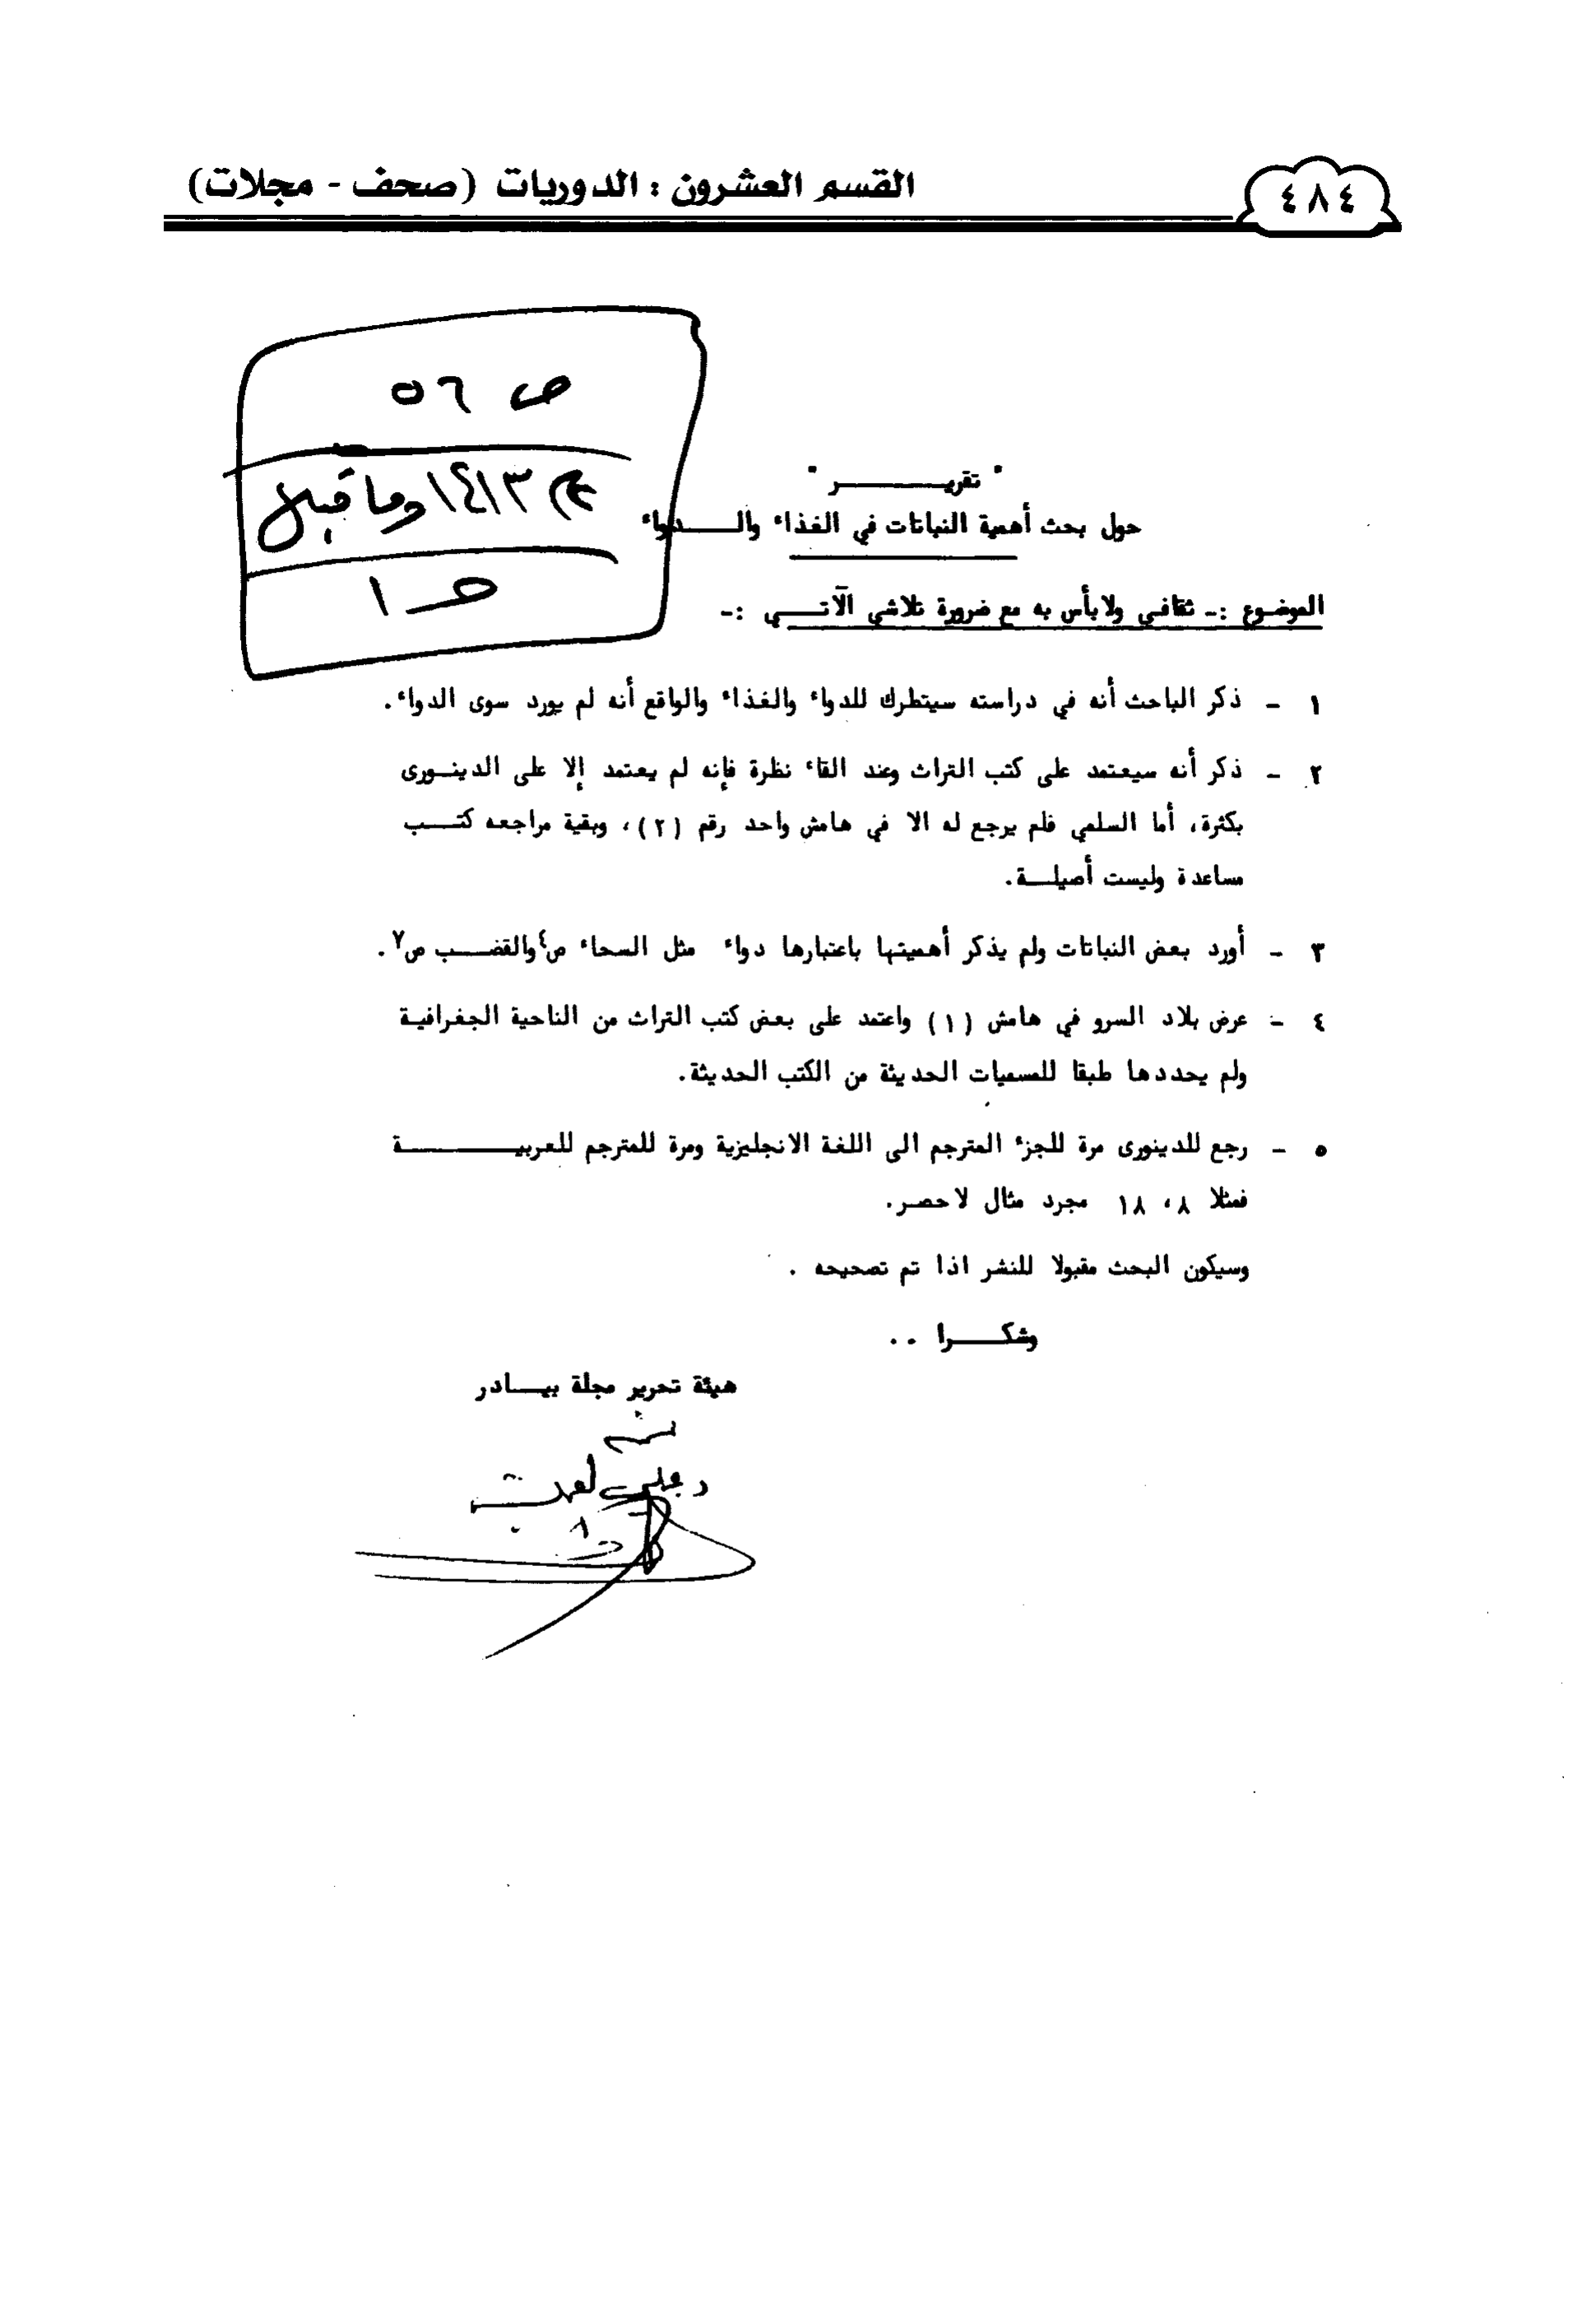 ٤٨٤
القسم العشرون : الدوريات (صحف - مجلات)
ص ٥٦
١٤١٣ وما قبل
حـ ١
" تقريــــــر "
حول بحث أهمية النباتات في الغذاء والــــدواء
الموضوع :ـ ثقافي ولابأس به مع ضرورة تلاشي الآتــــي :ـ
١ - ذكر الباحث أنه في دراسته سيتطرك للدواء والغذاء والواقع أنه لم يورد سوى الدواء.
٢ - ذكر أنه سيعتمد على كتب التراث وعند القاء نظرة فإنه لم يعتمد إلا على الدينــورى
بكثرة، أما السلمي فلم يرجع له الا في هامش واحد رقم (٢)، وبقية مراجعه كتــــب
مساعدة وليست أصيلــة.
٣ - أورد بعض النباتات ولم يذكر أهميتها باعتبارها دواء مثل السحاء ص٤ والقضــــب ص٧.
٤ - عرض بلاد السرو في هامش (١) واعتمد على بعض كتب التراث من الناحية الجغرافية
ولم يحددها طبقا للمسميات الحديثة من الكتب الحديثة.
٥ - رجع للدينورى مرة للجزء المترجم الى اللغة الانجليزية ومرة للمترجم للعربيــــــــة
فمثلا ٨، ١٨ مجرد مثال لاحصر.
وسيكون البحث مقبولا للنشر اذا تم تصحيحه .
وشكــــرا ..
هيئة تحرير مجلة بيــــادر